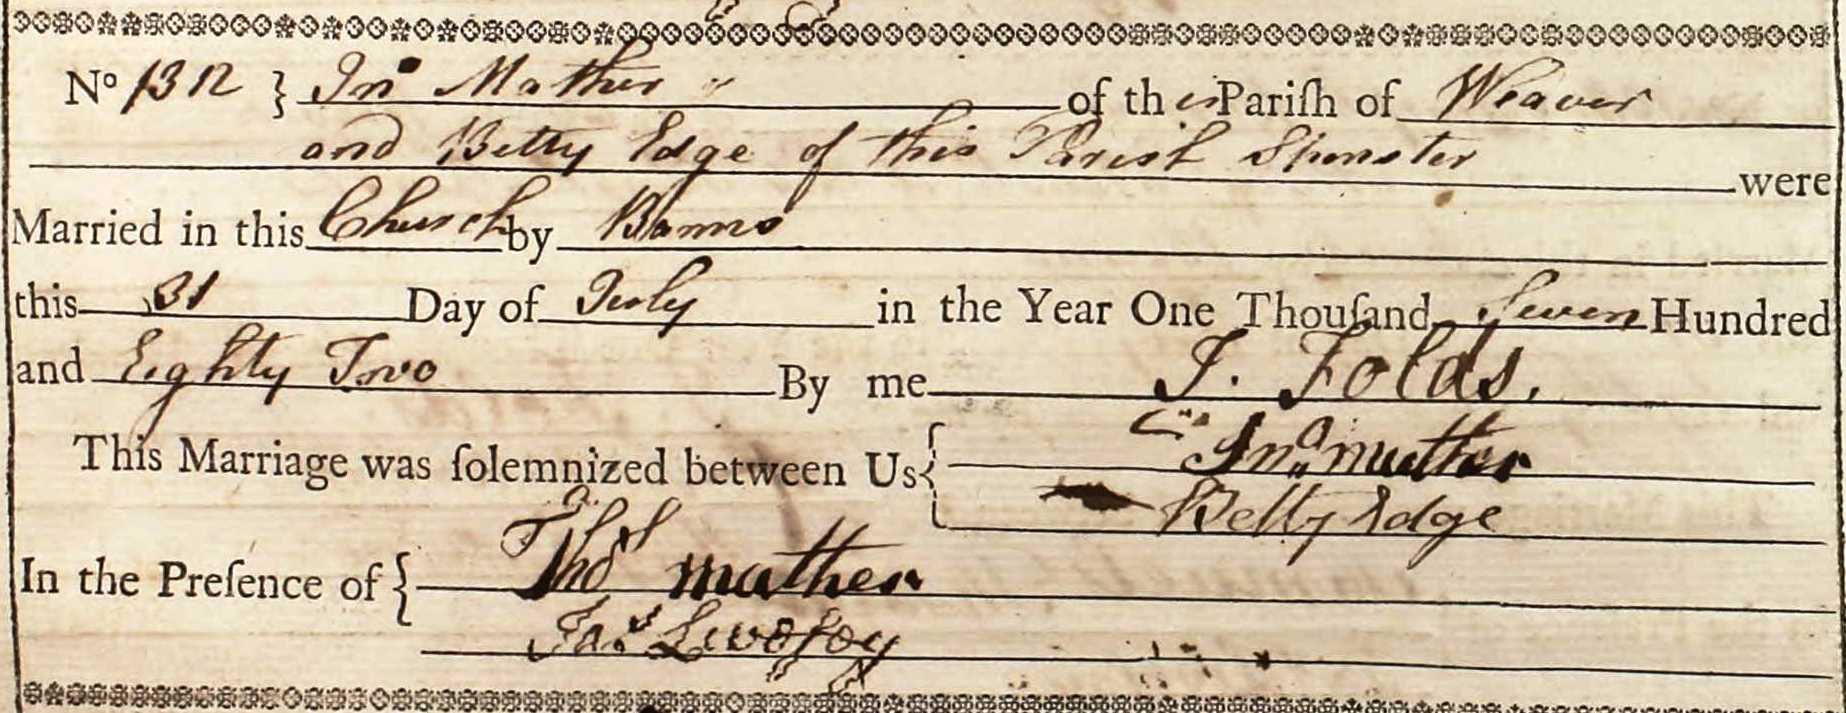 No 1312 } Jno Mather of this Pariſh of Weaver
and Betty Edge of this Parish Spinster were
Married in this Church by Banns
this 31 Day of July in the Year One Thouſand Seven Hundred
and Eighty Two By me J. Folds.
This Marriage was ſolemnized between Us { Jno mather
Betty Edge
In the Preſence of { Thos mather
Jas